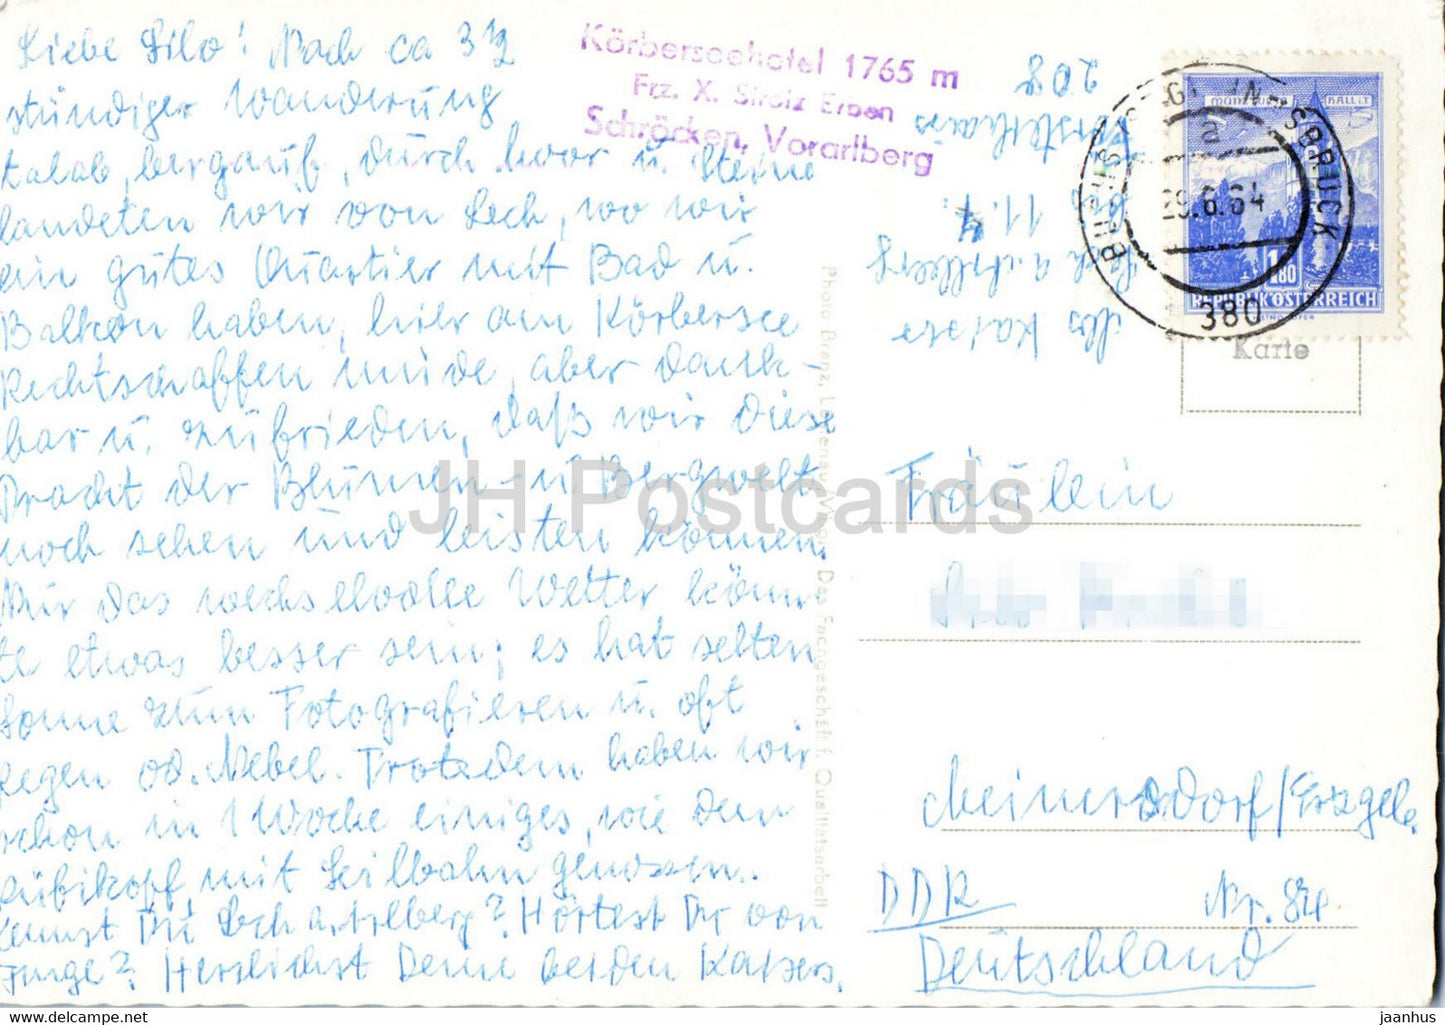 Liebe Silo! Nach ca 3 1/2
stündiger Wanderung
talab, bergauf, durch Moor u. Steine
landeten wir von Lech, wo wir
ein gutes Quartier mit Bad u.
Balkon haben, hier am Körbersee
Rechtschaffen müde, aber dank-
bar u. zufrieden, daß wir diese
Pracht der Blumen- u. Bergwelt
noch sehen und leisten können.
Nur das wechselvolle Wetter könn-
te etwas besser sein; es hat selten
Sonne zum Fotografieren u. oft
Regen od. Nebel. Trotzdem haben wir
schon in 1 Woche einiges, wie den
Rüfikopf, mit Seilbahn genossen.
Kennst Du Lech a. Arlberg? Hörtest Du von
Inge? Herzlichst Deine beiden Kaisers.
Körberseehotel 1765 m
Frz. X. Strolz Erben
Schröcken, Vorarlberg
Kaiser
Lech a. Arlberg
bis 11.7.
208
INNSBRUCK
a
29.6.64
380
MÜNZTURM
HALL i.T.
1.80
REPUBLIK ÖSTERREICH
Karte
Photo Branz, Das Fachgeschäft f. Qualitätsarbeit
Fräulein
Meinersdorf/Erzgeb.
DDR Nr. 84
Deutschland
JH Postcards
jaanhus www.delcampe.net